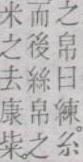 之帛曰練。糸
而後絲帛之
米之去康粊。